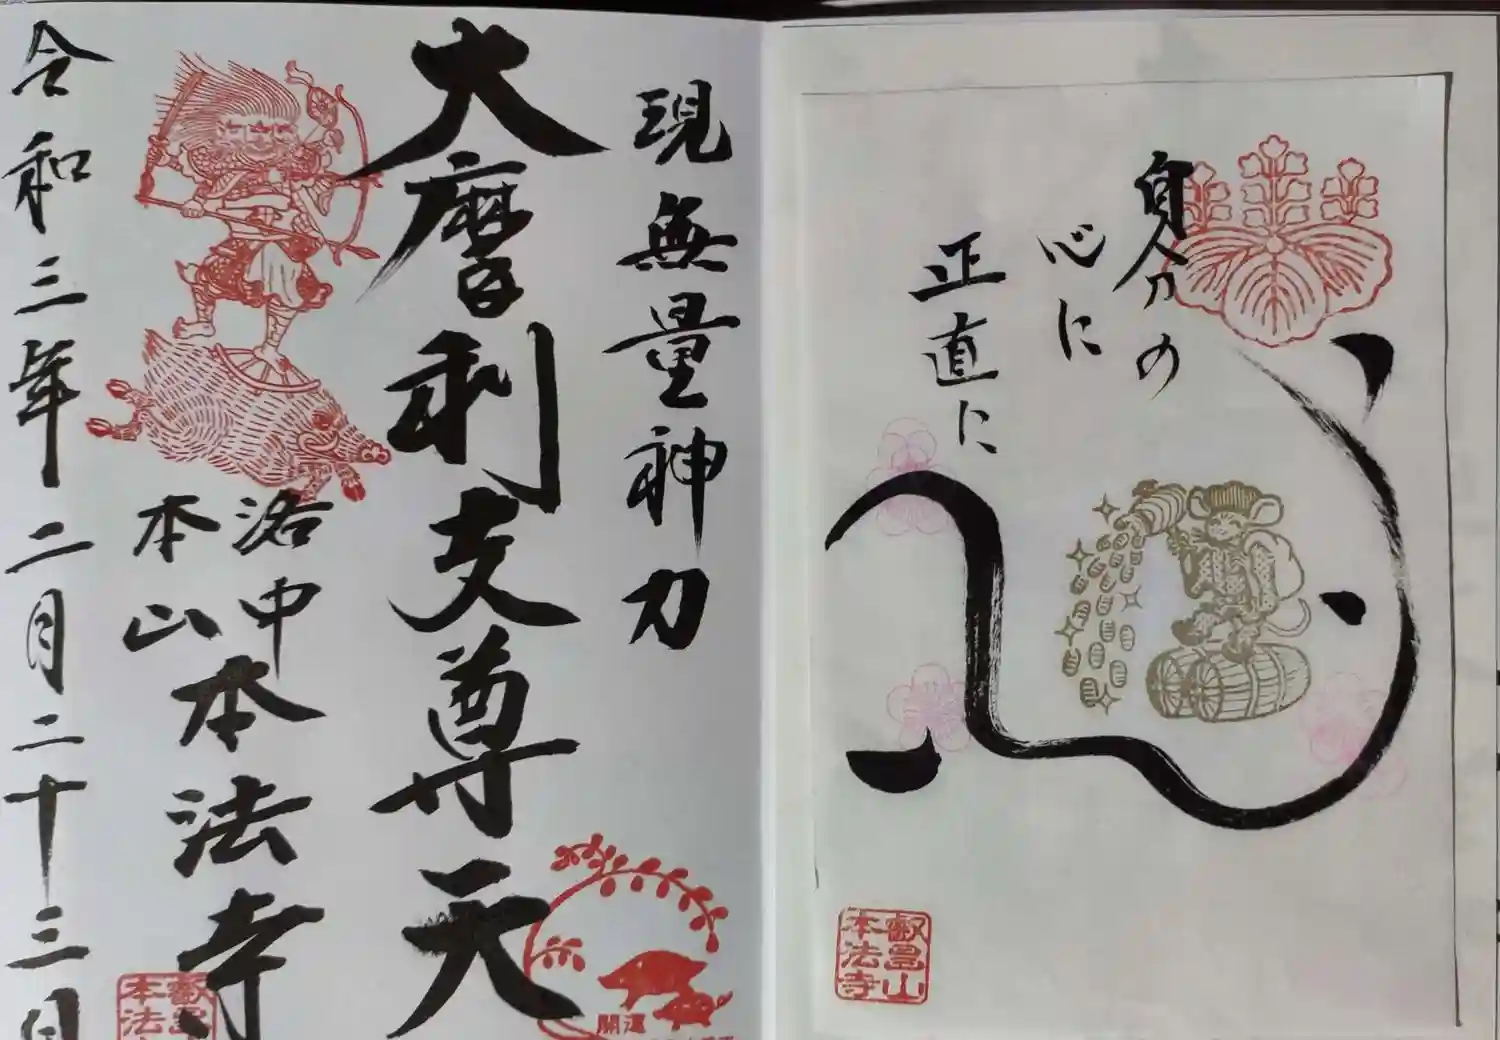 現無量神力
大摩利支尊天
洛中
本山
本法寺
令和三年二月二十三日
開運
叡昌山
本法
自分の
心に
正直に
叡昌山
本法寺